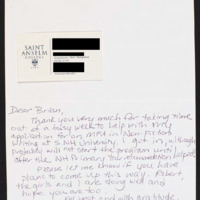 SAINT
ANSELM
COLLEGE
Dear Brian,
Thank you very much for taking time
out of a busy week to help with my
application for an MFA in Nonfiction
Writing at SNH University. I got in, although
probably will not start the program until
after the NH Primary. Your recommendation helped.
Please let me know if you have
plans to come up this way. Robert
the girls and I are doing well and
hope you are too.
best and with gratitude,